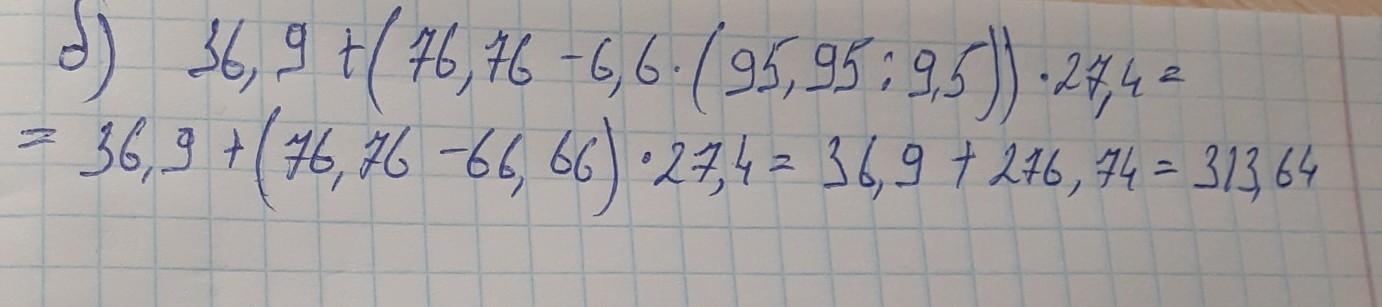 б) 36,9 + (76,76 - 6,6 · (95,95 : 9,5)) · 27,4 =
= 36,9 + (76,76 - 66,66) · 27,4 = 36,9 + 276,74 = 313,64